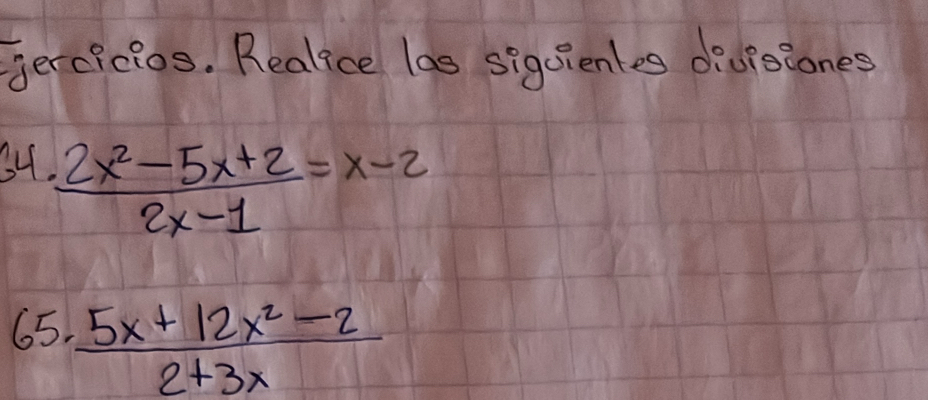 Ejercicios. Realice las siguientes divisiones
64. 2x² - 5x + 2 = x - 2
2x - 1
65. 5x + 12x² - 2
2 + 3x